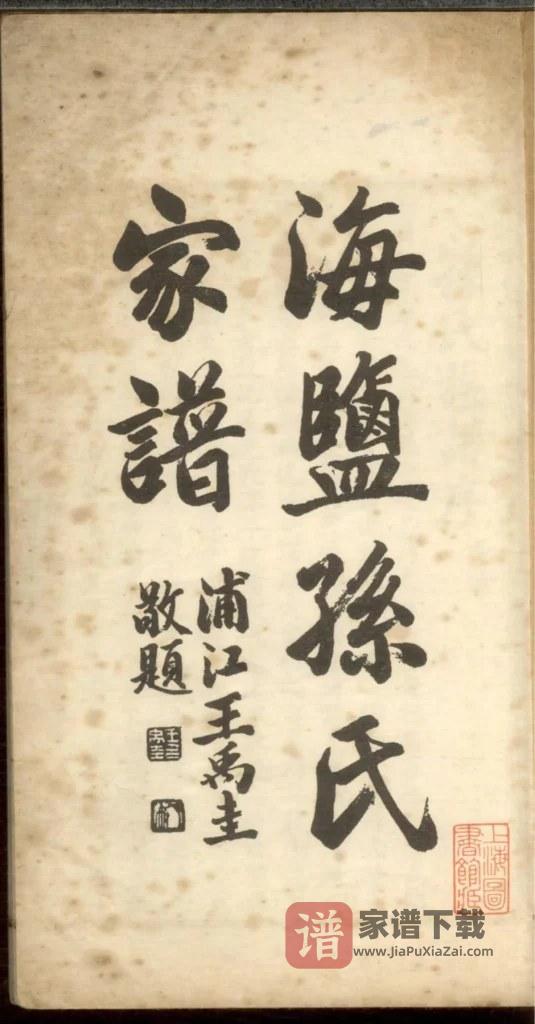 海鹽孫氏
家譜
浦江王禹圭
敬題
上海圖
書館藏
谱
家谱下载
www.JiaPuXiaZai.com